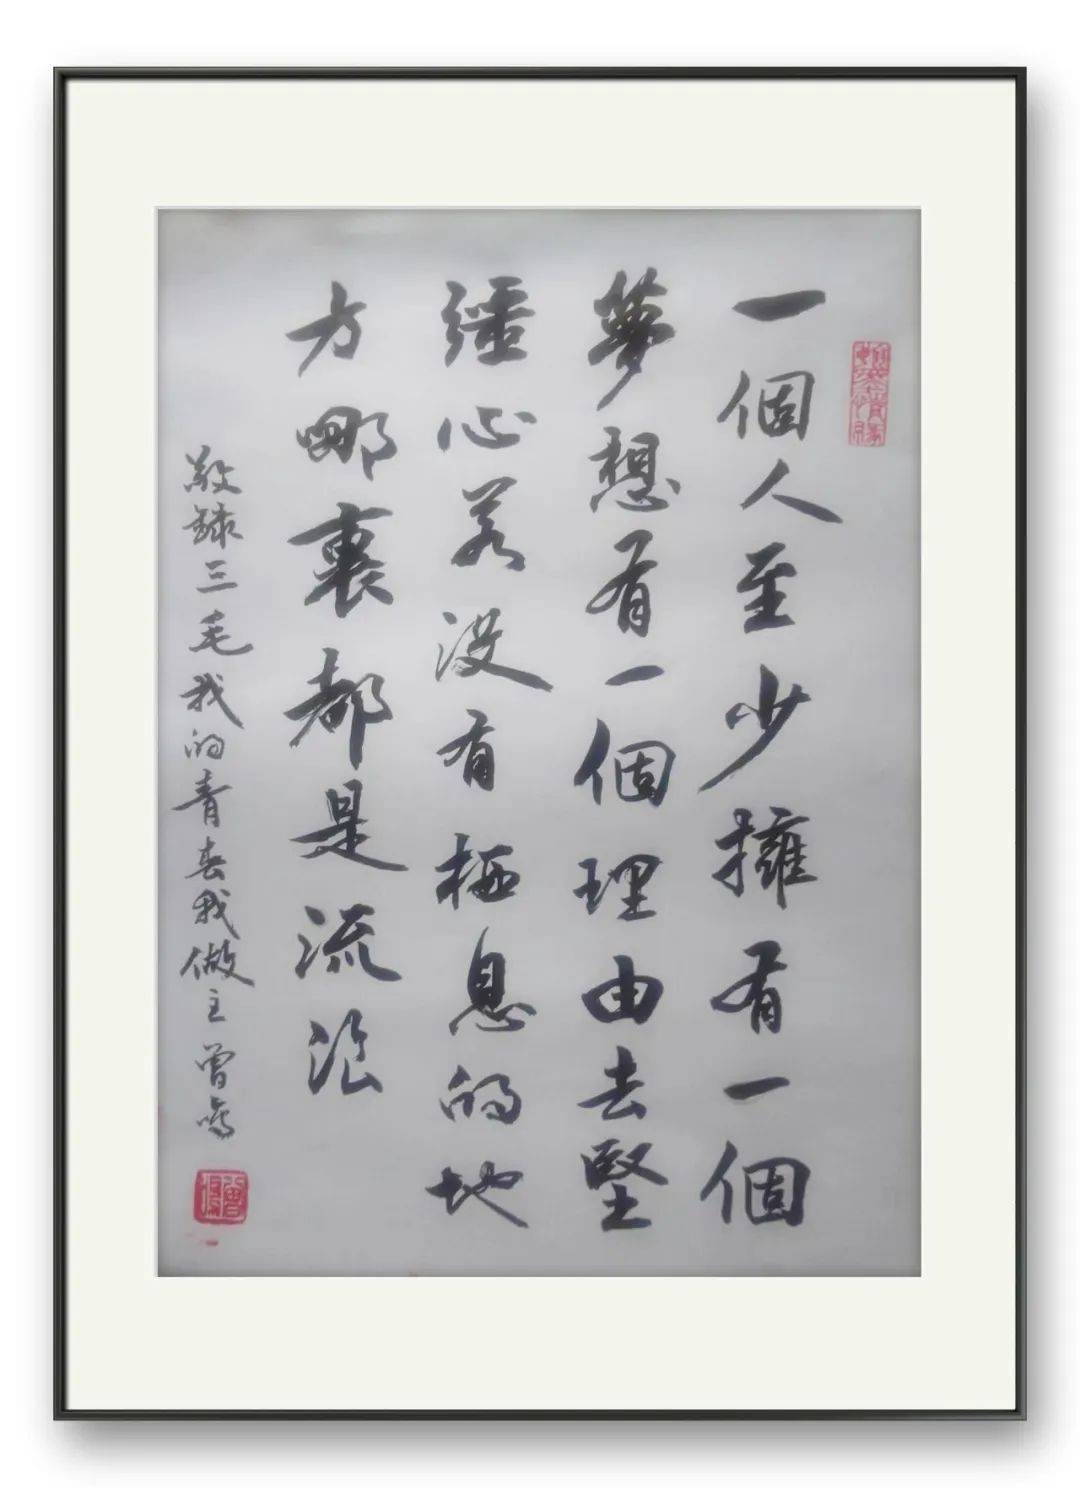 一個人至少擁有一個
夢想有一個理由去堅
彊心若没有栖息的地
方哪裏都是流浪
敬録三毛我的青春我做主曾